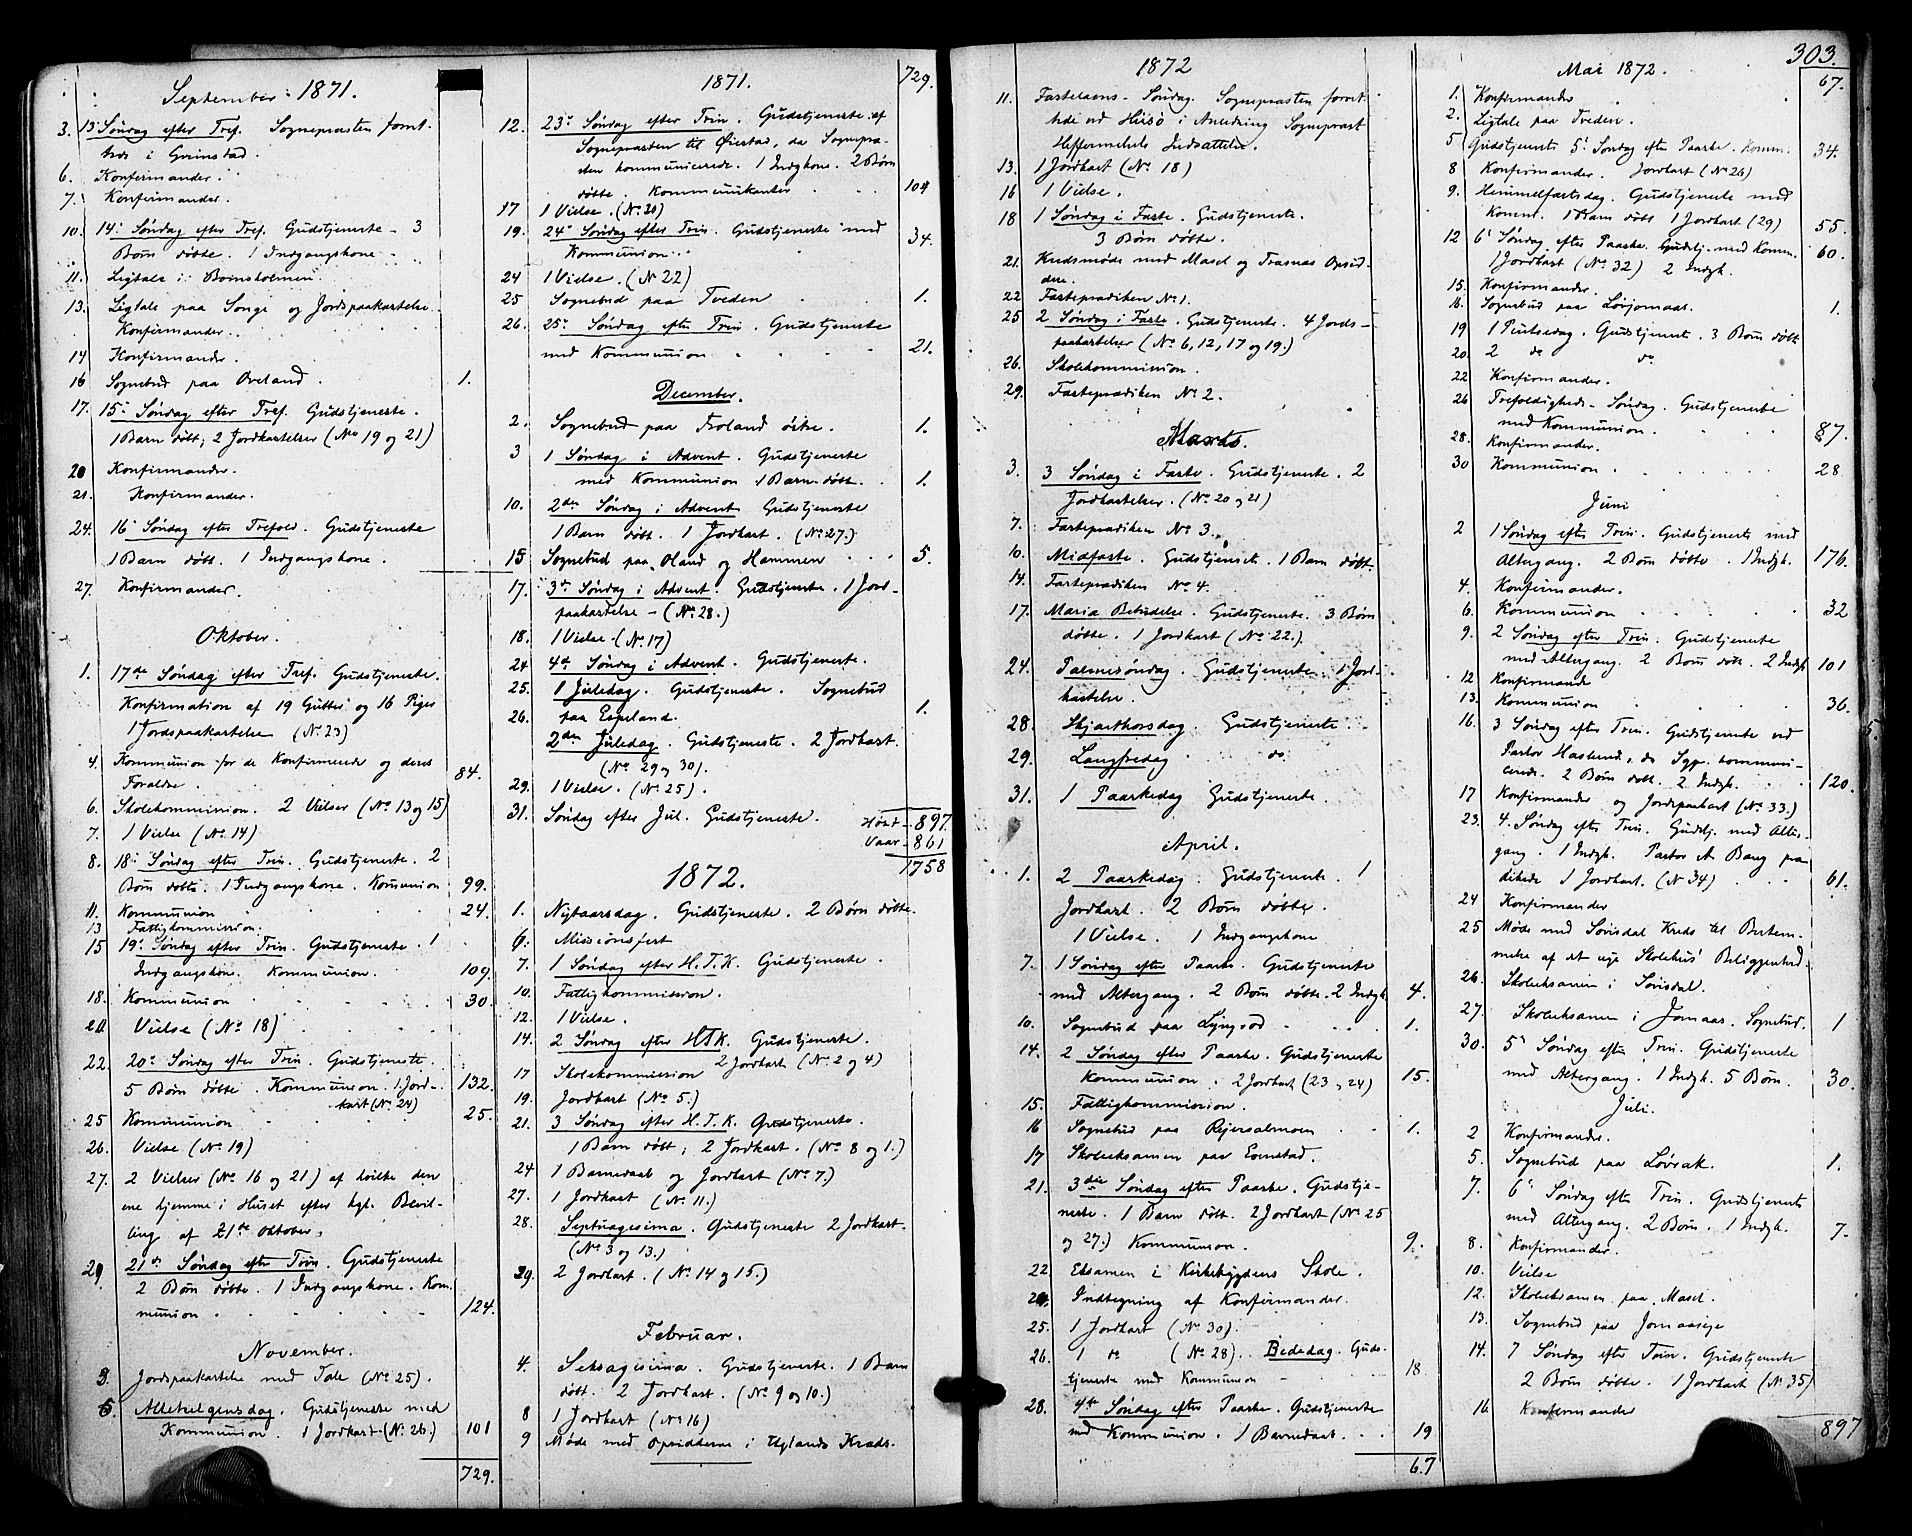 September 1871.
3. 13 Søndag efter Tref. Sognepræsten forret-
tede i Grimstad.
6. Konfirmander.
7. Konfirmander.
10. 14de Søndag efter Tref. Gudstjeneste - 3
Børn døbte. 1 Indgangskone.
11. Ligtale i Bornsholmen.
13. Ligtale paa Songe og Jordspaakastelse.
Konfirmander.
14 Konfirmander.
16 Sognebud paa Øveland. 1.
17. 15de Søndag efter Tref. Gudstjeneste.
1 Barn døbt; 2 Jordkastelser (No 19 og 21)
20 Konfirmander.
21. Konfirmander.
24. 16 Søndag efter Trefold. Gudstjeneste
1 Barn døbt. 1 Indgangskone.
27. Konfirmander.
Oktober.
1. 17de Søndag efter Tref. Gudstjeneste.
Konfirmation af 19 Gutter og 16 Piger
1 Jordspaakastelse (No 23)
4. Kommunion for de Konfirmerede og deres
Forældre. 84.
6. Skolekommission. 2 Vielser (No 13 og 15)
7. 1 Vielse (No 14)
8. 18de Søndag efter Trin. Gudstjeneste. 2
Børn døbte. 1 Indgangskone. Kommunion 99.
11. Kommunion 24.
13 Fattigkommission.
15 19de Søndag efter Trin. Gudstjeneste. 1
Indgangskone. Kommunion. 109.
18. Kommunion 30.
20 Vielse (No 18)
22. 20de Søndag efter Trin. Gudstjeneste.
5 Børn døbte. Kommunion. 1 Jord- 132.
kast (No 24)
25 Kommunion 25.
26. Vielse (No 19)
27. 2 Vielser (No 16 og 21) af hvilke den
ene hjemme i Huset efter kgl. Bevil-
ling af 21de Oktober.
29 21de Søndag efter Trin. Gudstjeneste
2 Børn døbte. 1 Indgangskone. Kom-
munion 124.
November.
3. Jordspaakastelse med Tale (No 25).
5. Allehelgensdag. Gudstjeneste med
Kommunion. 1 Jordkast (No 26.) 101
729.
1871. 729.
12. 23de Søndag efter Trin. Gudstjeneste af
Sognepræsten til Øiestad, da Sognepræ-
sten kommunicerede. 1 Indgkone. 2 Børn
døbte. Kommunikanter 104
17 1 Vielse. (No 20)
19. 24de Søndag efter Trin. Gudstjeneste med 34.
Kommunion.
24 1 Vielse (No 22)
25 Sognebud paa Tveden 1.
26. 25de Søndag efter Trin. Gudstjeneste
med Kommunion 21.
December.
2. Sognebud paa Froland østre. 1.
3 1 Søndag i Advent. Gudstjeneste
med Kommunion 1 Barn døbt. 1.
10. 2den Søndag i Advent Gudstjeneste
1 Barn døbt. 1 Jordkast. (No 27.)
15 Sognebud paa Øland og Hammeren 5.
17. 3die Søndag i Advent. Gudstjeneste. 1 Jord-
paakastelse - (No 28.)
18. 1 Vielse. (No 17)
24 4de Søndag i Advent. Gudstjeneste.
25. 1 Juledag. Gudstjeneste. Sognebud
26. paa Espeland. 1.
2den Juledag. Gudstjeneste. 2 Jordkast.
(No 29 og 30).
29. 1 Vielse. (No 25).
31. Søndag efter Jul. Gudstjeneste.
Høst - 897.
Vaar - 861
1758
1872.
1. Nytaarsdag. Gudstjeneste. 2 Børn døbte.
6. Missionsfest
7. 1 Søndag efter H.T.K. Gudstjeneste.
10. Fattigkommission.
12. 1 Vielse.
14. 2 Søndag efter HTK. Gudstjeneste.
2 Jordkast (No 2 og 4)
17 Skolekommission
19. Jordkast (No 5.)
21. 3 Søndag efter H.T.K. Gudstjeneste.
1 Barn døbt; 2 Jordkast. (No 8 og 1.)
24 1 Barnedaab og Jordkast (No 7)
27. 1 Jordkast (No 11.)
28. Septuagesima. Gudstjeneste 2 Jordkast.
(No 3 og 13.)
29. 2 Jordkast. (No 14 og 15.)
Februar.
4. Seksagesima. Gudstjeneste. 1 Barn
døbt. 2 Jordkast. (No 9 og 10.)
8 1 Jordkast (No 16)
9 Møde med Opsidderne i Uglands Kreds.
1872
11. Fastelavns-Søndag. Sognepræsten forret-
tede ved Hisø i Anledning Sognepræst
Heffermehls Indsættelse.
13. 1 Jordkast (No 18)
16 1 Vielse.
18 1 Søndag i Faste. Gudstjeneste.
3 Børn døbte.
21. Kredsmøde med Masel og Trasnæs Opsid-
dere.
22 Fasteprædiken No 1.
25 2 Søndag i Faste. Gudstjeneste. 4 Jords-
paakastelser (No 6, 12, 17 og 19.)
26. Skolekommission.
29. Fasteprædiken No 2.
Marts.
3. 3 Søndag i Faste. Gudstjeneste. 2
Jordkastelser. (No 20 og 21)
7. Fasteprædiken No 3.
10. Midfaste. Gudstjeneste. 1 Barn døbt.
14. Fasteprædiken No 4.
17. Maria Bebudelse. Gudstjeneste. 3 Børn
døbte. 1 Jordkast (No 22.)
24. Palmesøndag. Gudstjeneste. 1 Jord-
kastelse.
28. Skjærthorsdag. Gudstjeneste.
29. Langfredag do.
31. 1 Paaskedag Gudstjeneste.
April.
1. 2 Paaskedag. Gudstjeneste. 1
Jordkast. 2 Børn døbte.
1 Vielse. 1 Indgangskone
7. 1 Søndag efter Paaske. Gudstjeneste
med Altergang. 2 Børn døbte. 2 Indgk. 4.
10. Sognebud paa Lyngrød 1.
14. 2 Søndag efter Paaske. Gudstjeneste
Kommunion. 2 Jordkast (23 og 24) 15.
15. Fattigkommission.
16 Sognebud paa Rejersølmoen 1.
17 Skoleeksamen paa Evenstad.
21. 3die Søndag efter Paaske. Gudstje-
neste. 1 Barn døbt. 2 Jordkast (No 25
og 27.) Kommunion. 9.
22 Eksamen i Kirkebygdens Skole.
24. Indtegning af Konfirmander.
25. 1 Jordkast (No 30).
26. 1 do (No 28). Bededag. Guds-
tjeneste med Kommunion 18.
28. 4de Søndag efter Paaske. Gudstjeneste
med Kommunion. 1 Barnedaab. 19
67
303.
Mai 1872. 67.
1. Konfirmander
2. Ligtale paa Tveden.
5 Gudstjeneste 5te Søndag efter Paaske. Komm. 34.
8 Konfirmander. Jordkast (No 26)
9. Himmelfartsdag. Gudstjeneste med
Komm. 1 Barn døbt 1 Jordkast (29) 55.
12 6te Søndag efter Paaske Gudstj. med Komm. 60.
1 Jordkast (No 32) 2 Indgk.
15. Konfirmander.
16. Sognebud paa Løvjomaas. 1.
19 1 Pintsedag. Gudstjeneste. 3 Børn døbt.
20. 2 do do
22 Konfirmander.
26 Trefoldigheds-Søndag. Gudstjeneste
med Kommunion. 87.
28. Konfirmander.
30 Kommunion 28
Juni
2 1 Søndag efter Trin. Gudstjeneste med
Altergang. 2 Børn døbte. 1 Indgk. 176.
4. Konfirmander.
6. Kommunion 32
9. 2 Søndag efter Trin. Gudstjeneste
med Altergang. 2 Børn døbt. 2 Indgk 101
12 Konfirmander
13. Kommunion 36.
16. 3 Søndag efter Trin. Gudstjeneste ved
Pastor Haslund, da Sgp. kommuni-
cerede. 2 Børn døbt. 2 Indgk. 120.
17 Konfirmander og Jordspaakast (No 33.)
23. 4. Søndag efter Trin. Gudstj. med Alter-
gang. 1 Indgk. Pastor A Bang præ-
dikede 1 Jordkast. (No 34) 61.
24 Konfirmander
25 Møde med Søvisdal Kreds til Bestem-
melse af det nye Skolehus' Beliggenhed.
26. Skoleeksamen i Søvisdal.
27. Skoleeksamen i Jomaas. Sognebud. 1
30. 5te Søndag efter Trin. Gudstjeneste
med Altergang. 1 Indgk. 5 Børn. 30.
Juli.
2 Konfirmander.
5. Sognebud paa Løvrak. 1.
7. 6te Søndag efter Trin. Gudstjeneste
med Altergang. 2 Børn. 1 Indgk. 7.
8. Konfirmander.
10. Vielse
12. Skoleeksamen paa Masel.
13. Sognebud paa Jomaasige
14. 7 Søndag efter Trin. Gudstjeneste
2 Børn døbte. 1 Jordkast (No 35)
16. Konfirmander
897